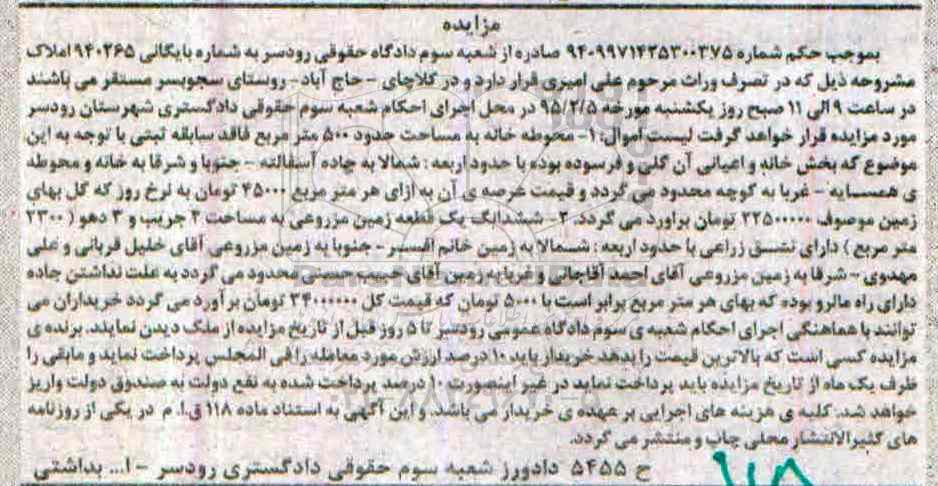 مزایده
بموجب حکم شماره ۹۴۰۹۹۷۱۴۳۵۳۰۰۳۷۵ صادره از شعبه سوم دادگاه حقوقی رودسر به شماره بایگانی ۹۴۰۲۶۵ املاک
مشروحه ذیل که در تصرف وراث مرحوم علی امیری قرار دارد و در کلاچای - حاج آباد- روستای سجوبسر مستقر می باشند
در ساعت ۹ الی ۱۱ صبح روز یکشنبه مورخه ۹۵/۲/۵ در محل اجرای احکام شعبه سوم حقوقی دادگستری شهرستان رودسر
مورد مزایده قرار خواهد گرفت لیست اموال: ۱- محوطه خانه به مساحت حدود ۵۰۰ متر مربع فاقد سابقه ثبتی با توجه به این
موضوع که بخش خانه و اعیانی آن گلی و فرسوده بوده با حدود اربعه : شمالا به جاده آسفالته - جنوبا و شرقا به خانه و محوطه
ی همسایه - غربا به کوچه محدود می گردد و قیمت عرصه ی آن به ازای هر متر مربع ۴۵۰۰۰ تومان به نرخ روز که کل بهای
زمین موصوف ۲۲۵۰۰۰۰۰ تومان براورد می گردد. ۲- ششدانگ یک قطعه زمین مزروعی به مساحت ۴ جریب و ۳ دهو (
متر مربع ) دارای نسق زراعی با حدود اربعه : شمالا به زمین خانم افسر - جنوبا به زمین مزروعی آقای خلیل قربانی و علی
مهدوی - شرقا به زمین مزروعی آقای احمد آقاجانی و غربا به زمین آقای حبیب حسنی محدود می گردد به علت نداشتن جاده
دارای راه مالرو بوده که بهای هر متر مربع برابر است با ۵۰۰۰ تومان که قیمت کل ۳۴۰۰۰۰۰۰ تومان بر آورد می گردد خریداران می
توانند با هماهنگی اجرای احکام شعبه ی سوم دادگاه عمومی رودسر تا ۵ روز قبل از تاریخ مزایده از ملک دیدن نمایند. برنده ی
مزایده کسی است که بالاترین قیمت را بدهد خریدار باید ۱۰ درصد ارزش مورد معامله را فی المجلس پرداخت نماید و مابقی را
ظرف یک ماه از تاریخ مزایده باید پرداخت نماید در غیر اینصورت ۱۰ درصد پرداخت شده به نفع دولت به صندوق دولت واریز
خواهد شد. کلیه ی هزینه های اجرایی بر عهده ی خریدار می باشد. و این آگهی به استناد ماده ۱۱۸ ق.ا.م در یکی از روزنامه
های کثیرالانتشار محلی چاپ و منتشر می گردد.
ح ۵۴۵۵ دادورز شعبه سوم حقوقی دادگستری رودسر - ا... بداشتی